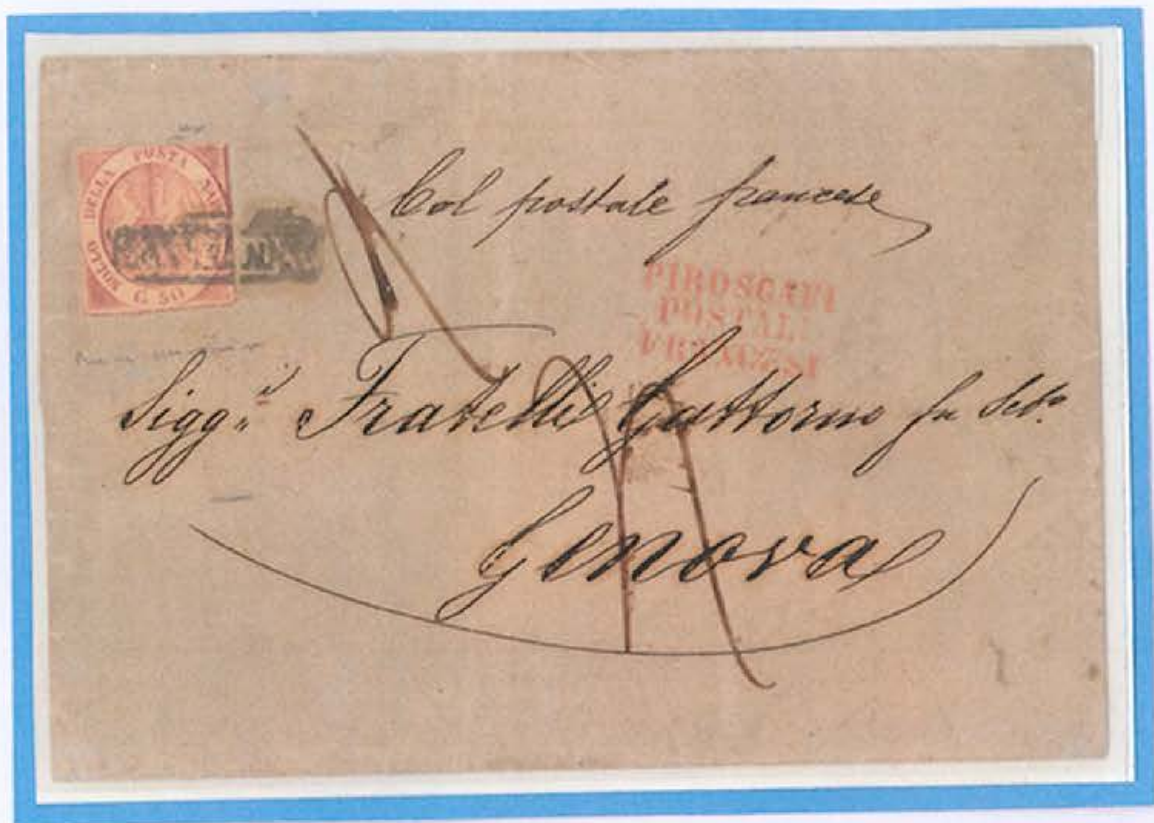 BOLLO DELLA POSTA NA
G. 50
Col postale francese
PIROSCAFI
POSTALI
FRANCESI
Sigg.ri Fratelli Gattorno fu Seb.o
Genova